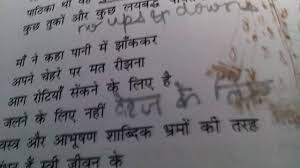 पाठिका थी वह
कुछ तुकों और कुछ लयबद्ध
no ups & downs
माँ ने कहा पानी में झाँककर
अपने चेहरे पर मत रीझना
आग रोटियाँ सेंकने के लिए है
जलने के लिए नहीं दहेज के लिए
वस्त्र और आभूषण शाब्दिक भ्रमों की तरह
हैं स्त्री जीवन के